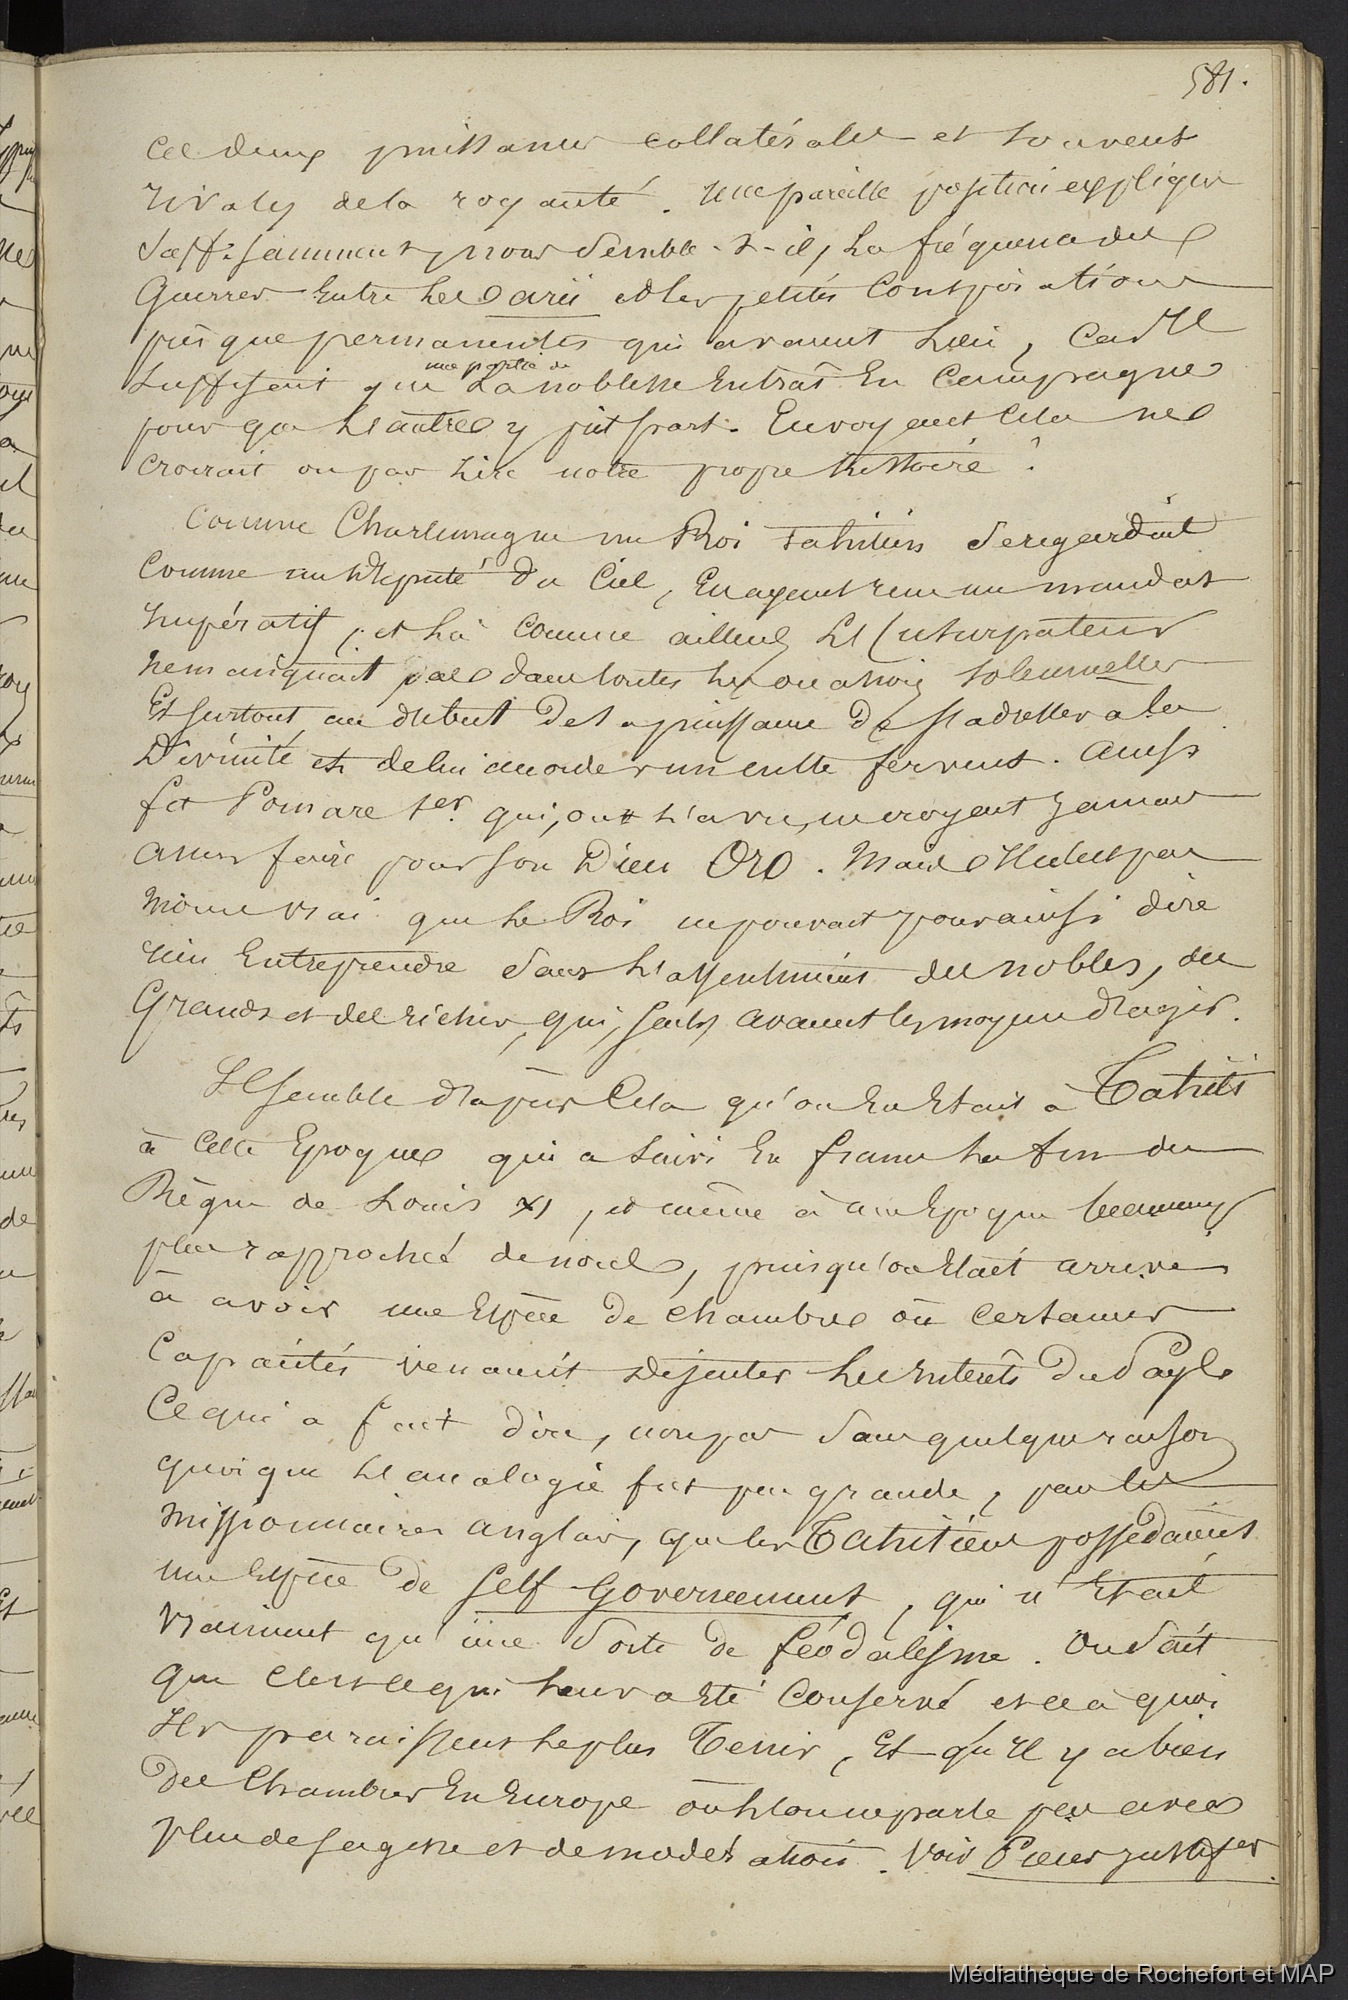 581.
ces deux puissances collatérales et souvent
rivales de la royauté. Une pareille position explique
suffisamment, nous semble-t-il, la fréquence des
Guerres entre les arii et les petites conspirations
presque permanentes qui avaient lieu, car il
suffisait que une partie de la noblesse entrât en campagne
pour que l'autre y prit part. En voyant cela ne
croirait on pas lire notre propre histoire ?
Comme Charlemagne un Roi tahitien se regardait
comme un député du Ciel, en ayant reçu un mandat
impératif ; et là comme ailleurs l'usurpateur
ne manquait pas dans toutes les occasions solennelles
et surtout au début de sa puissance de s'adresser à la
Divinité et de lui accorder un culte fervent. Ainsi
fit Pomare 1er qui, on l'a vu, ne croyait jamais
assez faire pour son Dieu Oro. Mais il n'est pas
moins vrai que le Roi ne pouvait pour ainsi dire
rien entreprendre sans l'assentiment des nobles, des
Grands et des riches, qui, seuls, avaient les moyens d'agir.
Il semble d'après cela qu'on en était à Tahiti
à cette époque qui a suivi en france la fin du
Règne de Louis XI, et même à une époque beaucoup
plus rapproché de nous, puisqu'on était arrivé
à avoir une espèce de chambre où certaines
Capacités venaient discuter les intérêts du Pays
Ce qui a fait dire, non pas sans quelque raison
quoique l'analogie fut peu grande, par les
missionnaires anglais, que les Tahitiens possédaient
une espèce de self-Government, qui n'était
vraiment qu'une sorte de féodalisme. On sait
que c'est ce qui leur a été conservé et ce à quoi
ils paraissent le plus tenir, et qu'il y a bien
des Chambres en Europe où l'on ne parle pas avec
plus de sagesse et de modération. Voir Pièces justifves
Médiathèque de Rochefort et MAP